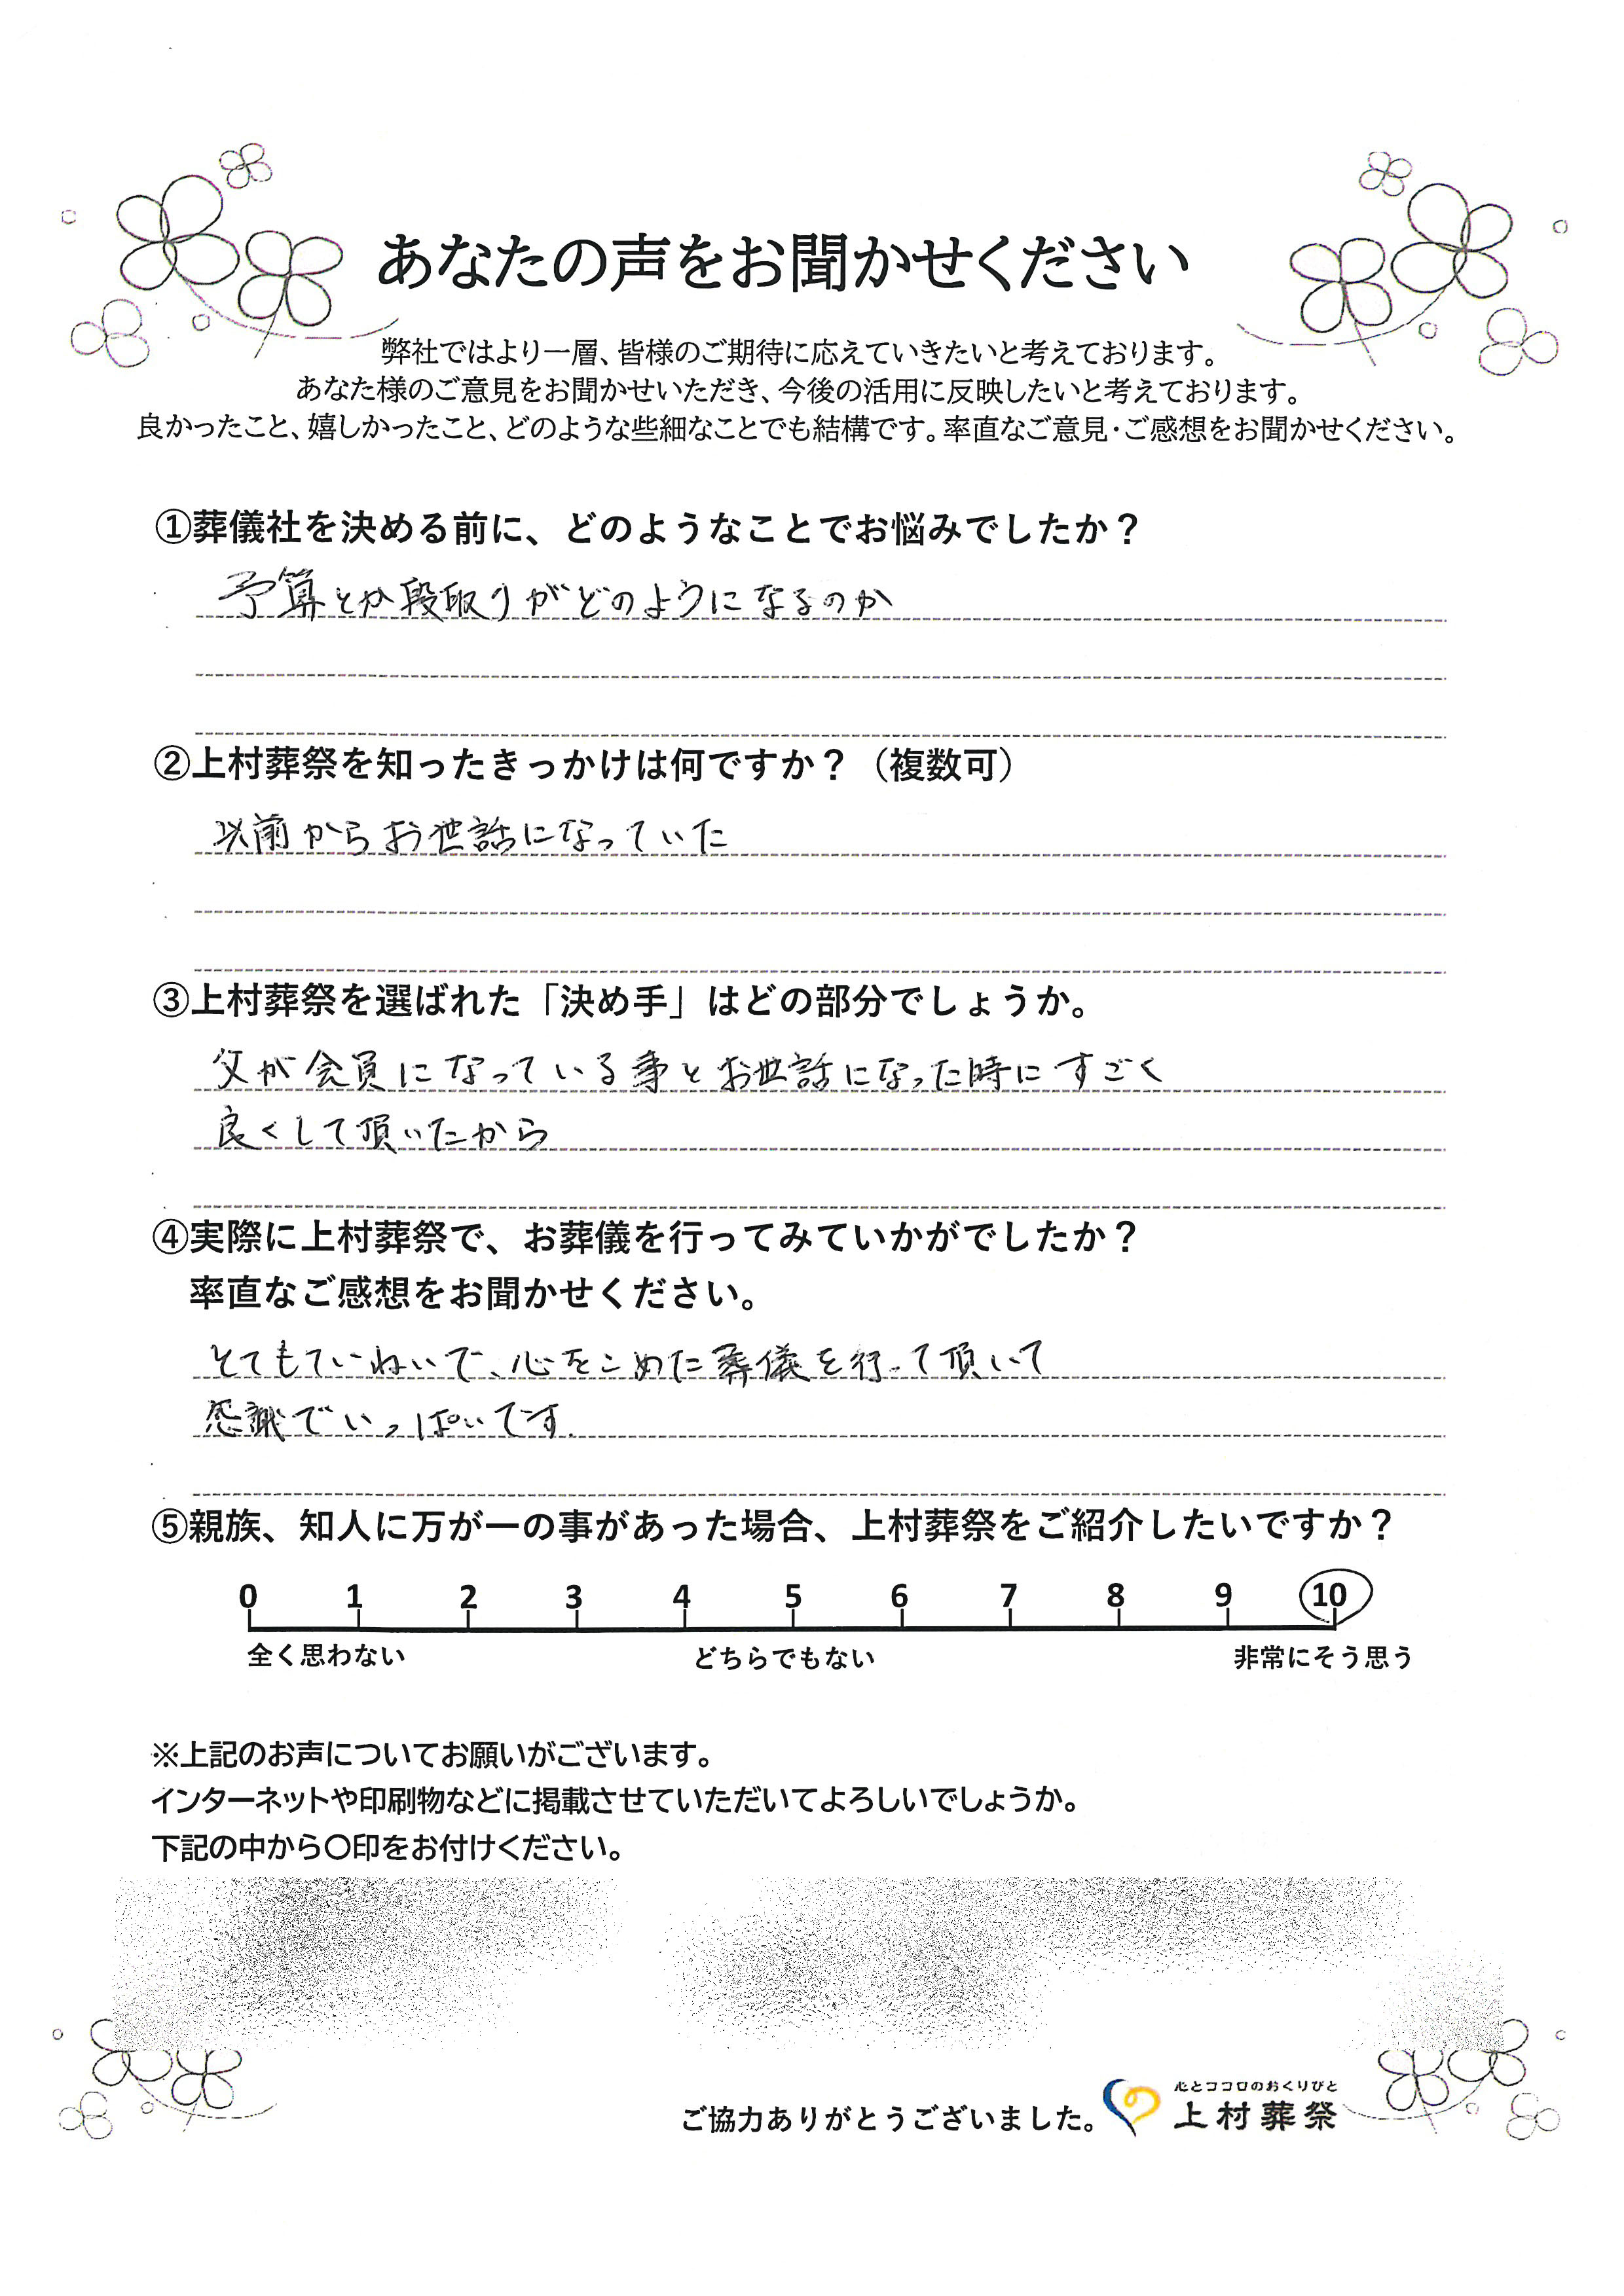 あなたの声をお聞かせください
弊社ではより一層、皆様のご期待に応えていきたいと考えております。
あなた様のご意見をお聞かせいただき、今後の活用に反映したいと考えております。
良かったこと、嬉しかったこと、どのような些細なことでも結構です。率直なご意見・ご感想をお聞かせください。
①葬儀社を決める前に、どのようなことでお悩みでしたか？
予算とか段取りがどのようになるのか
②上村葬祭を知ったきっかけは何ですか？（複数可）
以前からお世話になっていた
③上村葬祭を選ばれた「決め手」はどの部分でしょうか。
父が会員になっている事とお世話になった時にすごく
良くして頂いたから
④実際に上村葬祭で、お葬儀を行ってみていかがでしたか？
率直なご感想をお聞かせください。
とてもていねいで、心をこめた葬儀を行って頂いて
感謝でいっぱいです。
⑤親族、知人に万が一の事があった場合、上村葬祭をご紹介したいですか？
0 1 2 3 4 5 6 7 8 9 10
全く思わない どちらでもない 非常にそう思う
※上記のお声についてお願いがございます。
インターネットや印刷物などに掲載させていただいてよろしいでしょうか。
下記の中から〇印をお付けください。
心とココロのおくりびと
ご協力ありがとうございました。 上村葬祭